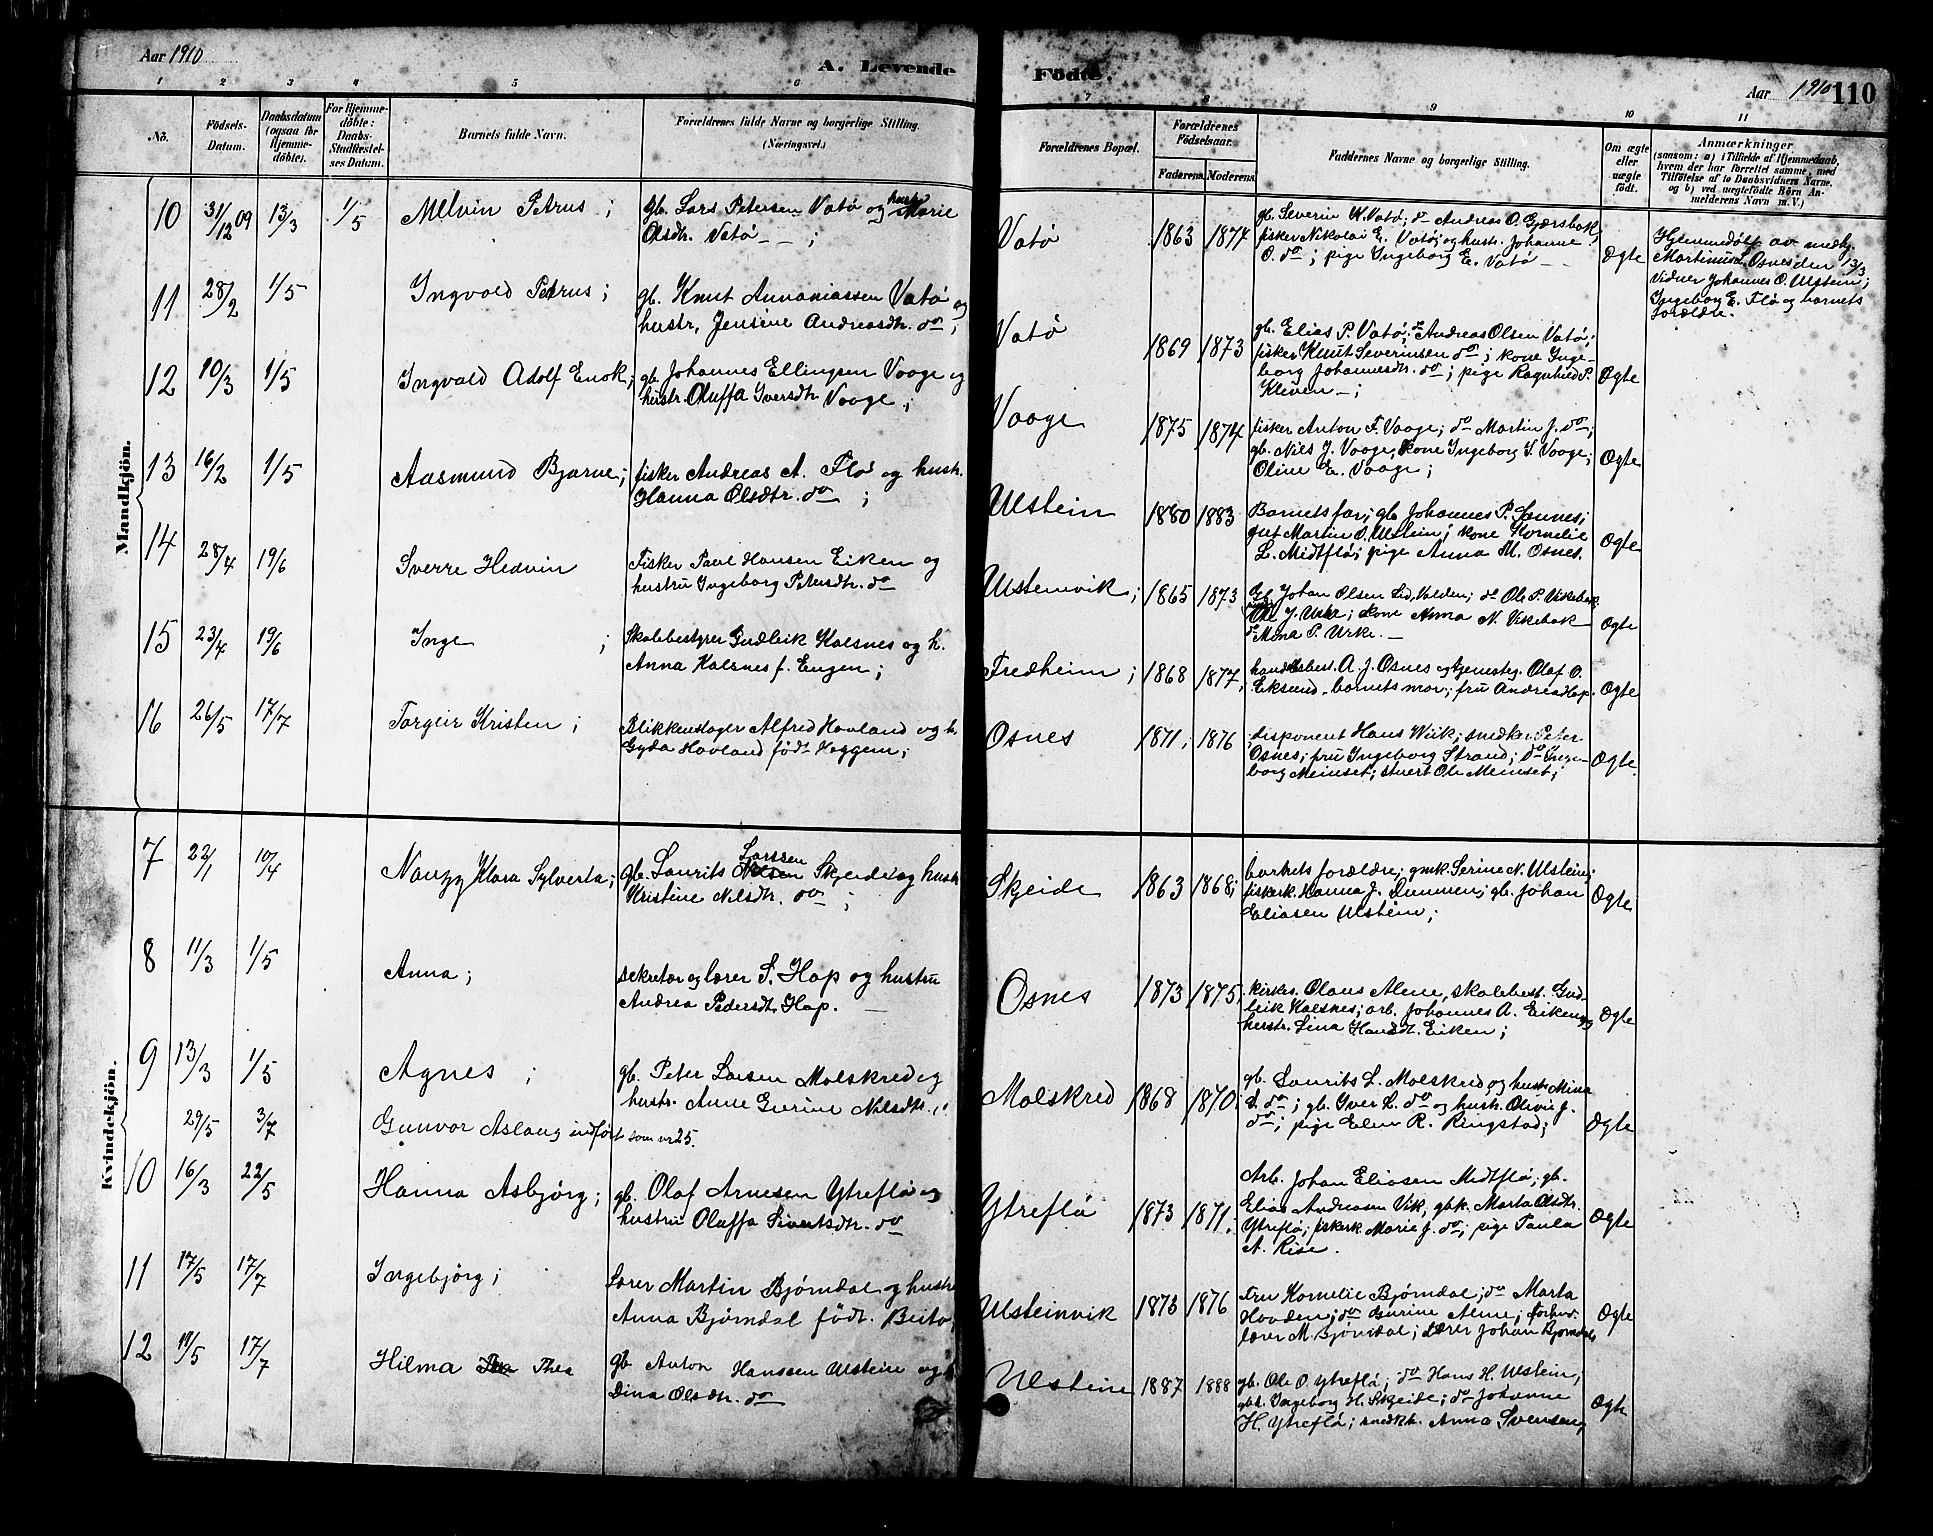 Aar 1910
A. Levende
Födte.
Aar 1910
110
1 2 3 4 5 6 7 8 9 10 11
No.
Födsels-
Datum.
Daabsdatum
(ogsaa for
Hjemme-
döbte).
For Hjemme-
döbte:
Daabs-
Stadfæstel-
ses Datum.
Barnets fulde Navn.
Forældrenes fulde Navne og borgerlige Stilling.
(Næringsvei.)
Forældrenes Bopæl.
Forældrenes
Födselsaar.
Faderens.
Moderens.
Faddernes Navne og borgerlige Stilling.
Om ægte
eller
uægte
født.
Anmærkninger
(saasom: a) i Tilfælde af Hjemmedaab,
hvem der har forrettet samme, med
Tilföielse af to Daabsvidners Navne,
og b) ved uægtefödte Börn An-
melderens Navn m. V.)
Mandkjön.
10 31/12 09 13/3 1/5 Melvin Petrus;
gb. Lars Petersen Vatø og hustr. Marie
Olsdtr. Vatø - ;
Vatø 1863 1874
gb. Severin K. Vatø; do Andreas O. Gjærsbak,
fisker Nikolai E. Vatø; og hustr. Johanne
O. do; pige Ingeborg E. Vatø
Ægte
Hjemmedøbt av medhj.
Martinus L. Osnes den 13/3
Vidner Johannes O. Ulstein;
Ingeborg E. Flø og barnets
forældre.
11 28/2 1/5 Ingvald Petrus;
gb. Knut Annaniassen Vatø og
hustr, Jensine Andreasdtr. do;
Vatø 1869 1873
gb. Elias P. Vatø; do Andreas Olsen Vatø;
fisker Knut Severinsen do; kone Inge-
borg Johannesdtr. do; pige Ragnhild P.
Kleven -;
Ægte
12 10/3 1/5 Ingvald Adolf Enok;
gb. Johannes Ellingsen Vaage og
hustr. Oluffa Iversdtr Vaage;
Vaage 1875 1874
fisker Anton F. Vaage; do Martin J. do;
gb. Nils J. Vaage, kone Ingeborg I. Vaage;
Oline E. Vaage;
Ægte
13 16/2 1/5 Aasmund Bjarne;
fisker Andreas A. Flø og hustr.
Hanna Olsdtr. do;
Ulstein 1880 1883
Barnets far; gb. Johannes P. Sannes;
gut Martin O. Ulstein; kone Kornelie
L. Midtflø; pige Anna M. Osnes.
Ægte
14 28/4 19/6 Sverre Hedvin
Fisker Paul Hansen Eiken og
hustru Ingeborg Petersdtr. do
Ulsteinvik; 1865 1873
Gb. Johan Olsen Lid, Volden; do Ole P. Vikebak
Ole J. Urke; kone Anna N. Vikebak
do Mina P. Urke. -
Ægte
15 23/4 19/6 Inge;
Skolebestyrer Gudleik Kalsnes og h.
Anna Kalsnes f. Engen;
Fredheim; 1868 1877,
handelsbest. A. J. Osnes og tjenesteg. Olaf O.
Eksund, barnets mor; fru Andrea Hop.
Ægte
16 26/5 17/7 Torgeir Kristen;
Blikkenslager Alfred Hovland og h.
Gyda Hovland født Heggem;
Osnes 1871; 1876
disponent Hans Wiik; snedker Peter
Osnes; fru Ingeborg Strand; do Inge-
borg Meinset; stuert Ole Meinset;
Ægte.
Kvindekjön.
7 22/1 10/4 Nanzy Klara Sylverta;
gb. Laurits Larssen Skeide og hustr.
Kristine Nilsdtr. do;
Skjeide 1863 1868;
barnets forældre; gmk. Serine N. Ulstein;
fiskerk. Hanna J. Dimmen; gb. Johan
Eliasen Ulstein;
Ægte
8 11/3 1/5 Anna;
sekretær og lærer S. Hop og hustru
Andrea Pedersdtr. Hop.
Osnes 1873 1875
kirkes. Olaus Alme, skolebest. Gud-
leik Kalsnes; arb. Johannes A. Eiken og
hustr. Lina Hansdt. Eiken;
Ægte
9 13/3 1/5 Agnes;
gb. Peter Larsen Molskred og
hustr. Anne Gurine Nilsdtr.;
Molskred 1868 1870
gb. Laurits L. Molskred og hustr. Mina
L. do; gb. Iver L. do og hustr. Olivie J.
do; pige Elen R. Ringstad;
Ægte
29/5 3/7 Gunvor Aslaug indført som nr 25.
10 16/3 22/5 Hanna Asbjørg;
gb. Olaf Arnesen Ytreflø og
hustru Oluffa Sivertsdtr. do
Ytreflø 1873 1871,
Arb. Johan Eliasen Midtflø; gb.
Elias Andreasen Vik, gbk. Marta Olsdtr.
Ytreflø; fiskerk. Marie J. do; pige Paula
A. Rise.
Ægte
11 17/5 17/7 Ingebjørg;
Lærer Martin Bjørndal og hustr
Anna Bjørndal født Beito;
Ulsteinvik 1873 1876
Fru Kornelie Bjørndal; do Marta
Hovden; do Gurine Alme; forhv.
lærer M. Bjørndal; Lærer Johan Bjørndal,
Ægte
12 19/5 17/7 Hilma Thea
gb. Anton Hanssen Ulstein og h.
Dina Olsdtr. do
Ulstein 1887 1888
gb. Ole O. Ytreflø; do Hans H. Ulstein;
gbk. Ingeborg H. Skeide; do Johanne
H. Ytreflø; snedk. Anna Svensen;
Ægte